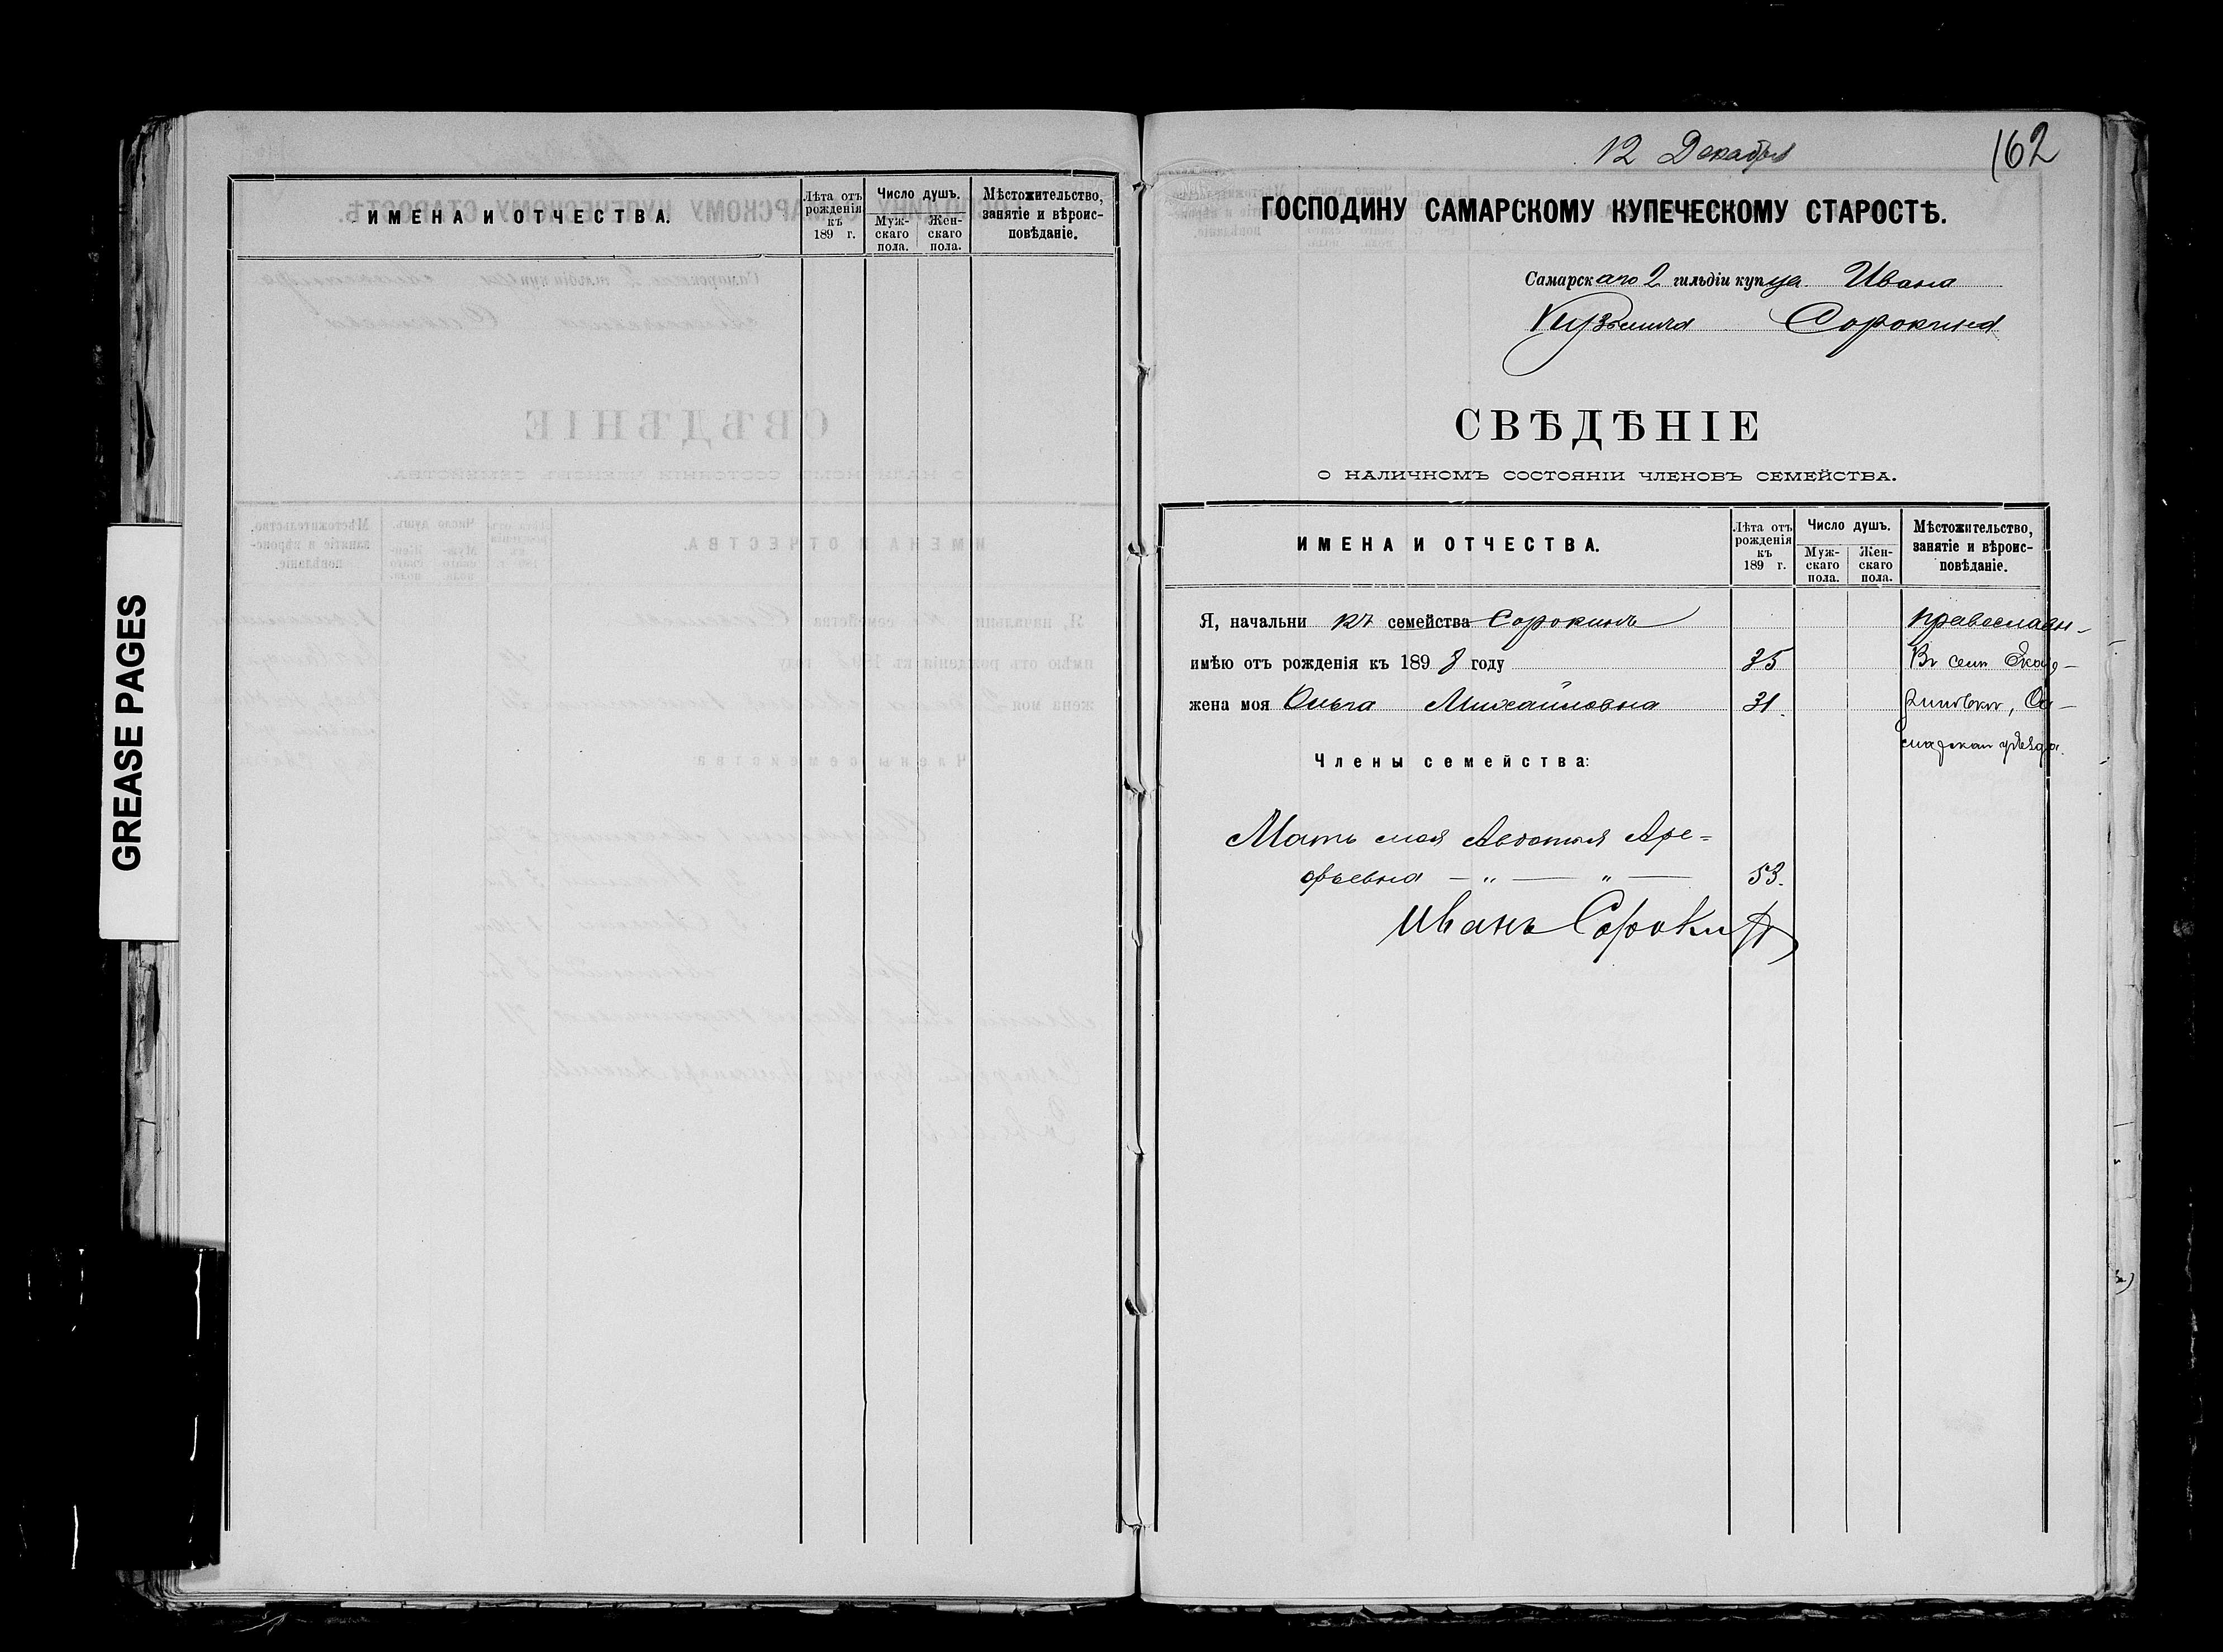 GREASE PAGES
ИМЕНА И ОТЧЕСТВА.
Лѣта отъ рожденія къ 189 г.
Число душъ.
Мужскаго пола.
Женскаго пола.
Мѣстожительство, занятіе и вѣроисповѣданіе.
12 Декабря
162
ГОСПОДИНУ САМАРСКОМУ КУПЕЧЕСКОМУ СТАРОСТѢ.
Самарскаго 2 гильдіи купца Ивана
Кузьмича Сорокина
СВѢДѢНІЕ
О НАЛИЧНОМЪ СОСТОЯНІИ ЧЛЕНОВЪ СЕМЕЙСТВА.
ИМЕНА И ОТЧЕСТВА.
Лѣта отъ рожденія къ 189 г.
Число душъ.
Муж-скаго пола.
Жен-скаго пола.
Мѣстожительство, занятіе и вѣроис-повѣданіе.
Я, начальникъ семейства Сорокинъ православн-
имѣю отъ рожденія къ 1898 году 35 Въ селѣ
жена моя Ольга Михайловна 31.
уѣзда.
Члены семейства:
Мать моя Авдотья Аре=
фьевна — „ — „ — 53.
Иванъ Сорокин